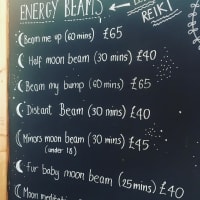 ENERGY BEAMS
REIKI
Beam me up (60 mins) £65
Half moon beam (30 mins) £40
Beam my bump (60 mins) £65
Distant Beam (30 mins) £40
Minors moon beam (30 mins) £45
(under 18)
Fur baby moon beam (25 mins) £40
Moon meditation